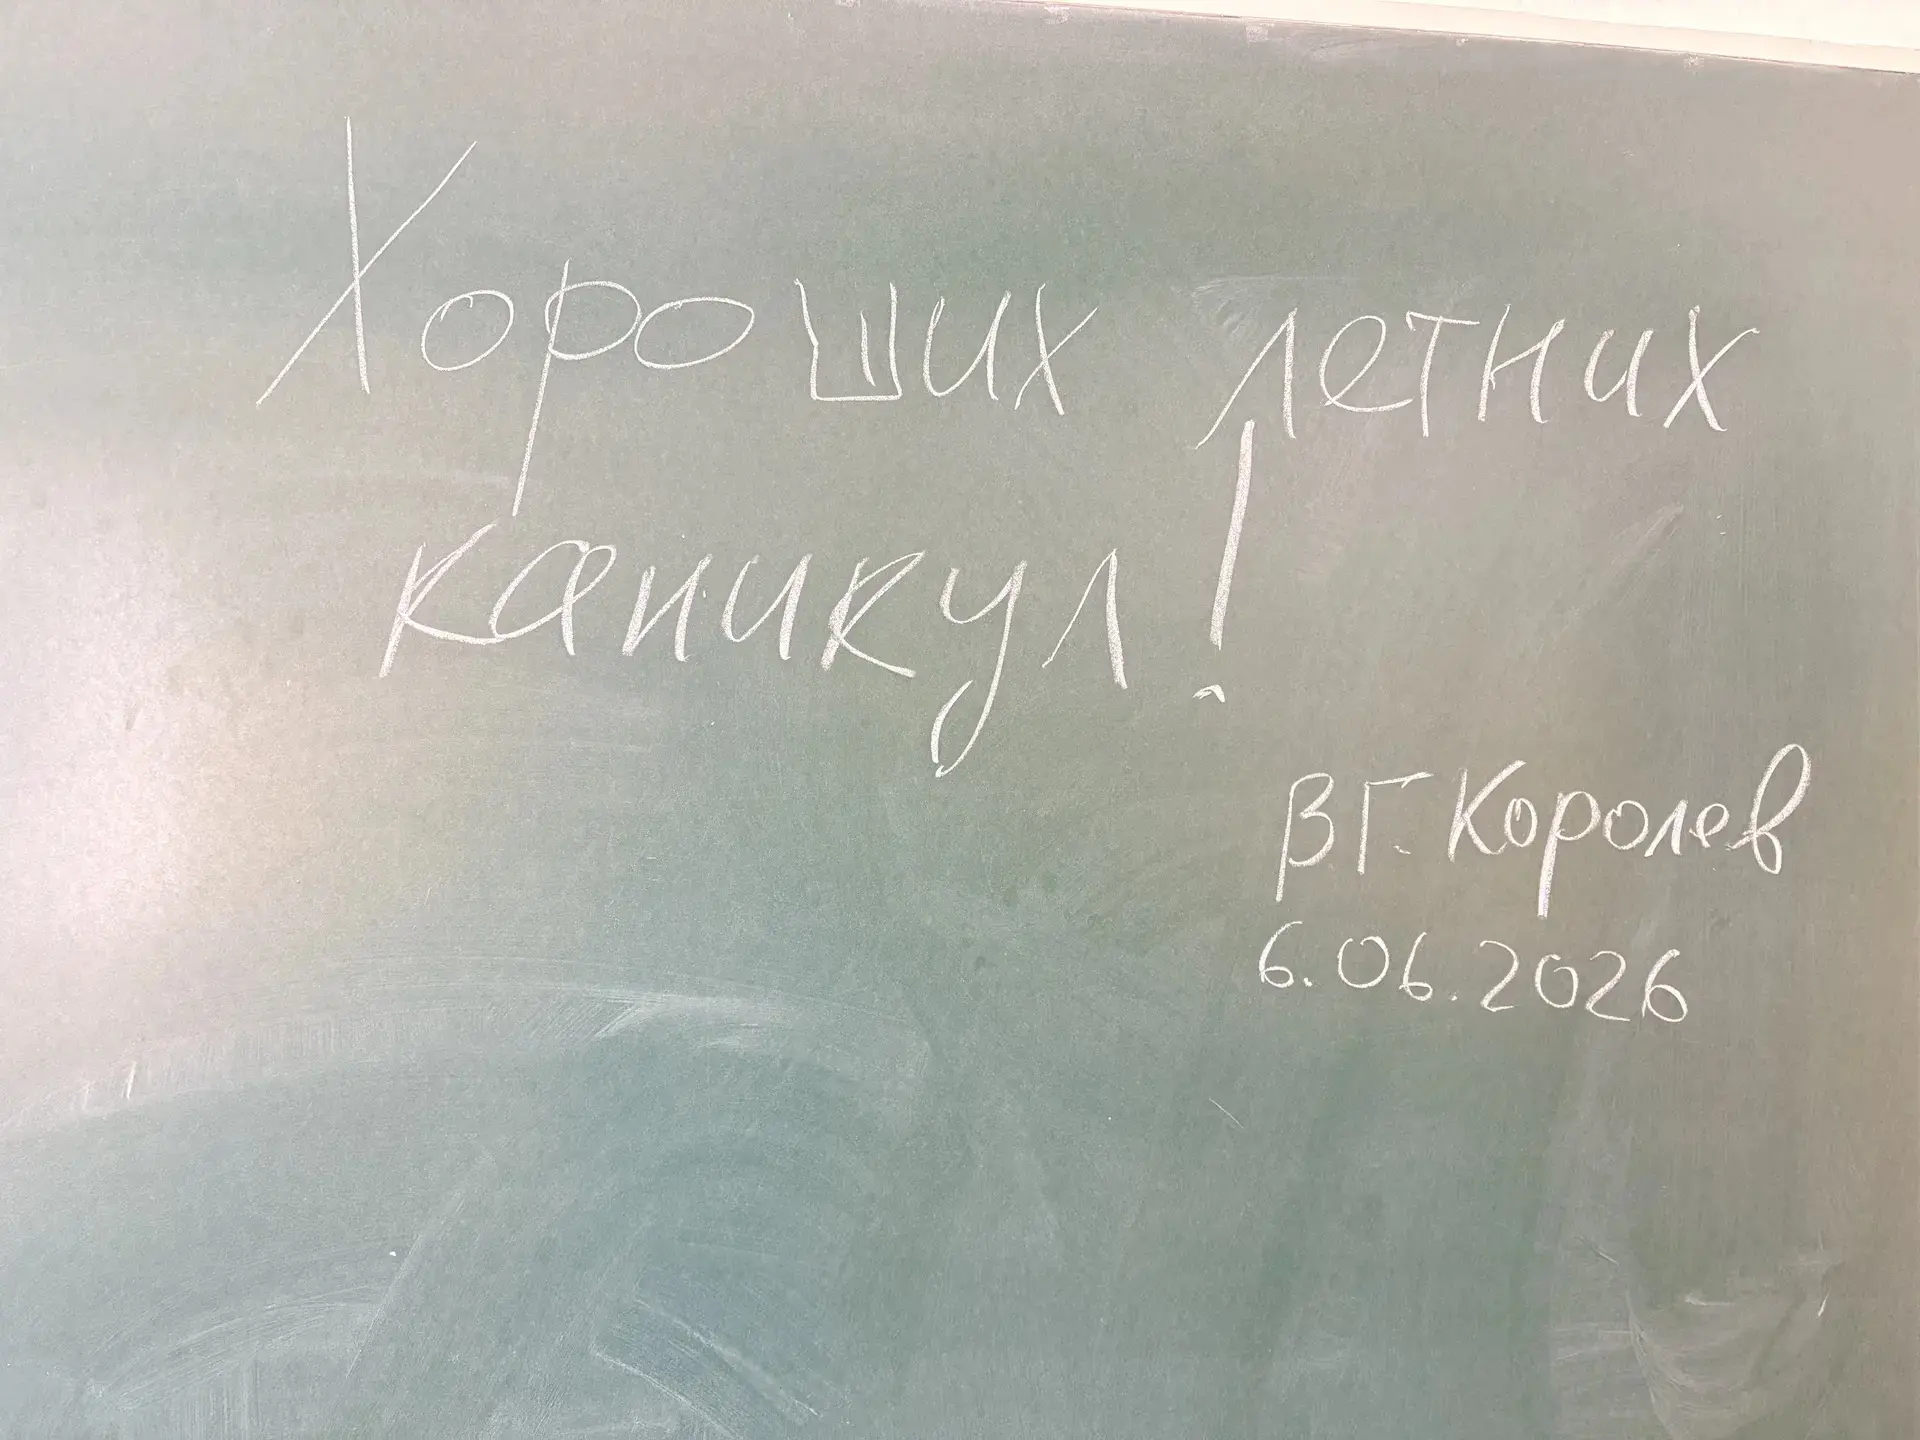 Хороших летних
каникул!
В Г. Королев
6.06.2026